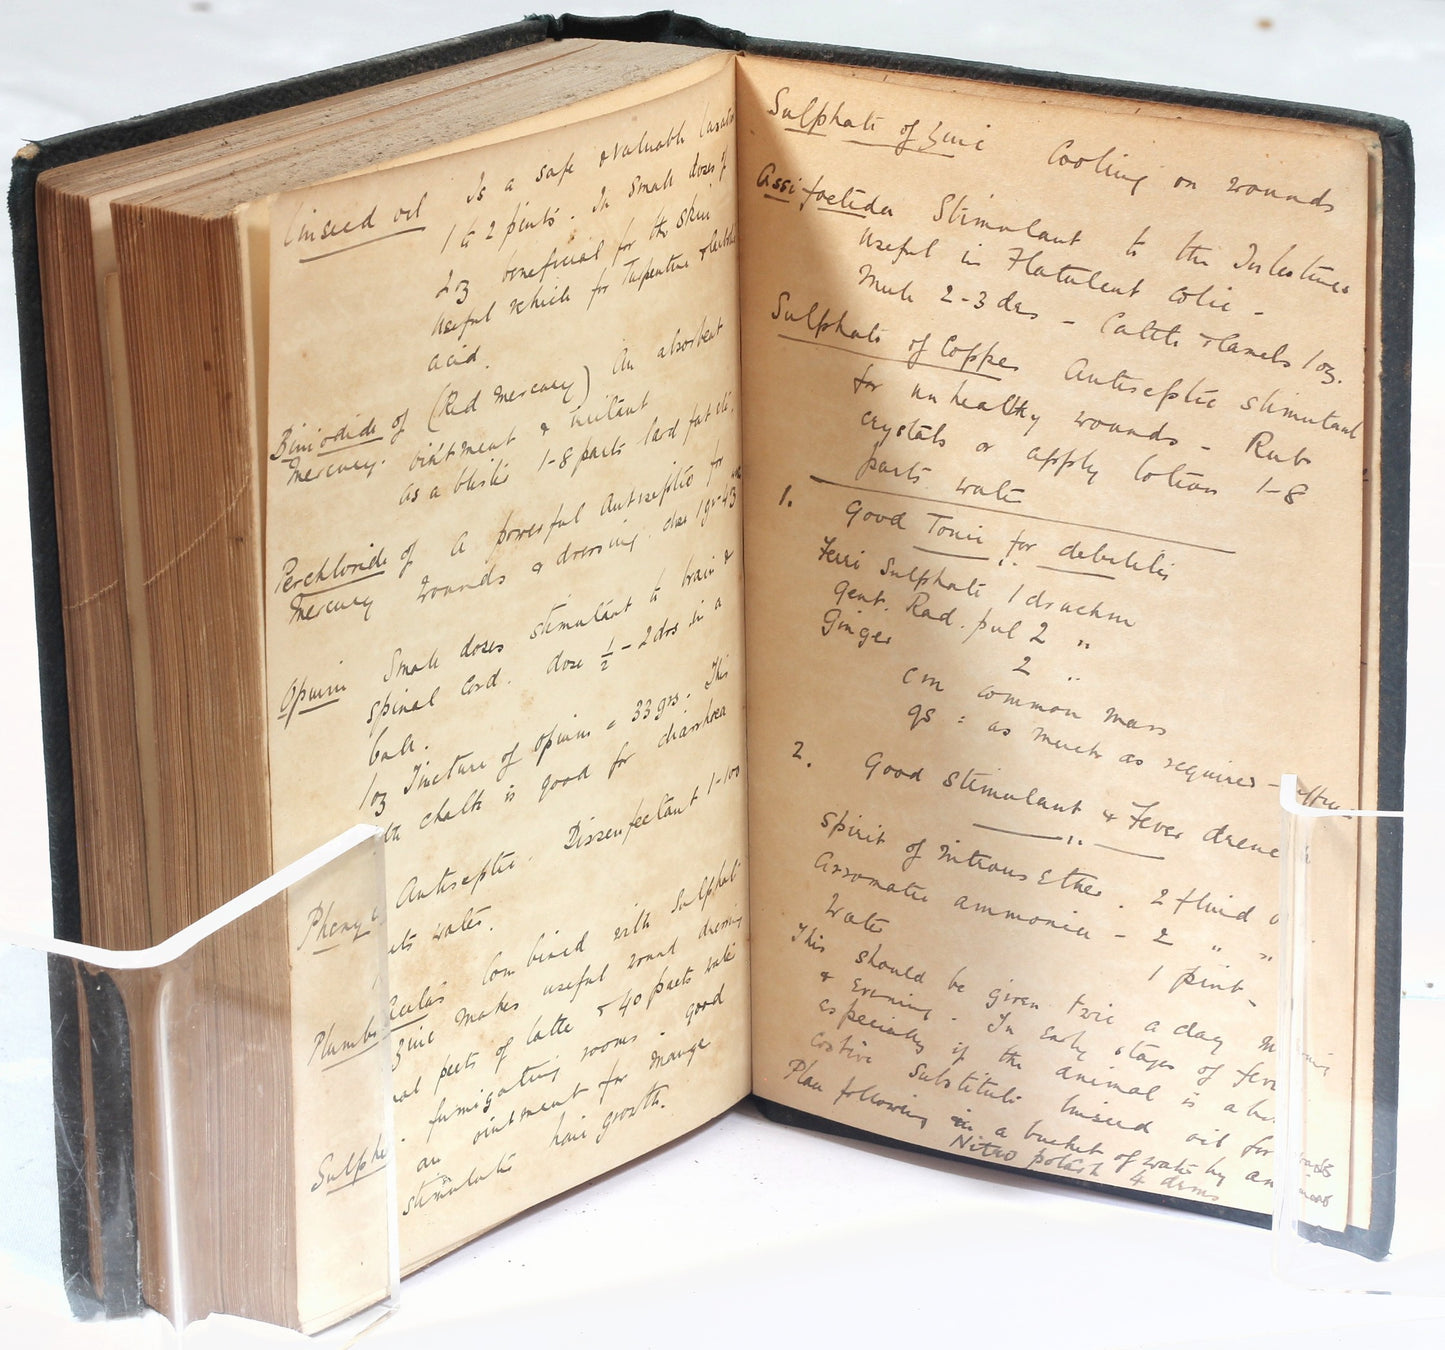 Linseed oil Is a safe & valuable laxative
1 to 2 pints. In small doses of
2 oz beneficial for the skin
useful vehicle for Turpentine & carbolic
acid.
Biniodide of (Red Mercury) An absorbent
Mercury. ointment & irritant
as a blister 1-8 parts lard fat
Perchloride of A powerful Antiseptic for
Mercury wounds & dressing. dose 1 gr-
Opium Small doses stimulant to brain &
spinal cord. dose ½ - 2 drs in a
ball.
1 oz Tincture of opium = 33 grs. This
chalk is good for diarrhoea
Antiseptic. Dissenfectant 1-100
water.
Plumbi Acetas Combined with Sulphate
Zinc makes useful wound dressing
parts of latte - 40 parts water
Sulphur fumigating rooms. good
an ointment for mange
stimulate hair growth.
Sulphate of Zinc Cooling on wounds
Assifoetida Stimulant to the Intestines
useful in Flatulent colic -
Mule 2-3 drs - Cattle & Camels 1 oz.
Sulphate of Copper Antiseptic stimulant
for unhealthy wounds - Rub
crystals or apply lotion 1-8
parts water
1. Good Tonic for debility
Ferri Sulphate 1 drachm
Gent. Rad. pul 2 "
Ginger 2 "
cm common mass
qs : as much as required -
2. Good stimulant & Fever drench
spirit of nitrous Ether. 2 fluid
Arromatic ammonia - 2 " "
Water 1 pint -
This should be given twice a day
& Evening. In early stages of fever
especially if the animal is a bit
costive substitute linseed oil for
Plan following in a bucket of water by an
Nitro potash 4 drms